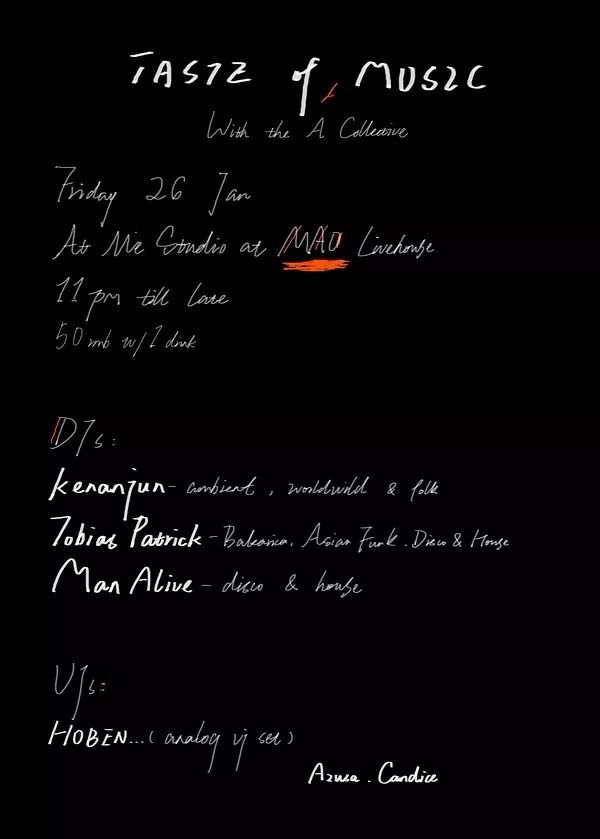 TASTE of MUSIC
With the A Collective
Friday 26 Jan
At Mie Studio at MAO Livehouse
11 pm till late
50 rmb w/ 1 drink
DJs:
Kenanjun - ambient, worldwild & folk
Tobias Patrick - Balearica, Asian Funk. Disco & House
Man Alive - disco & house
VJs:
HOBEN... (analog vj set)
Azusa. Candice